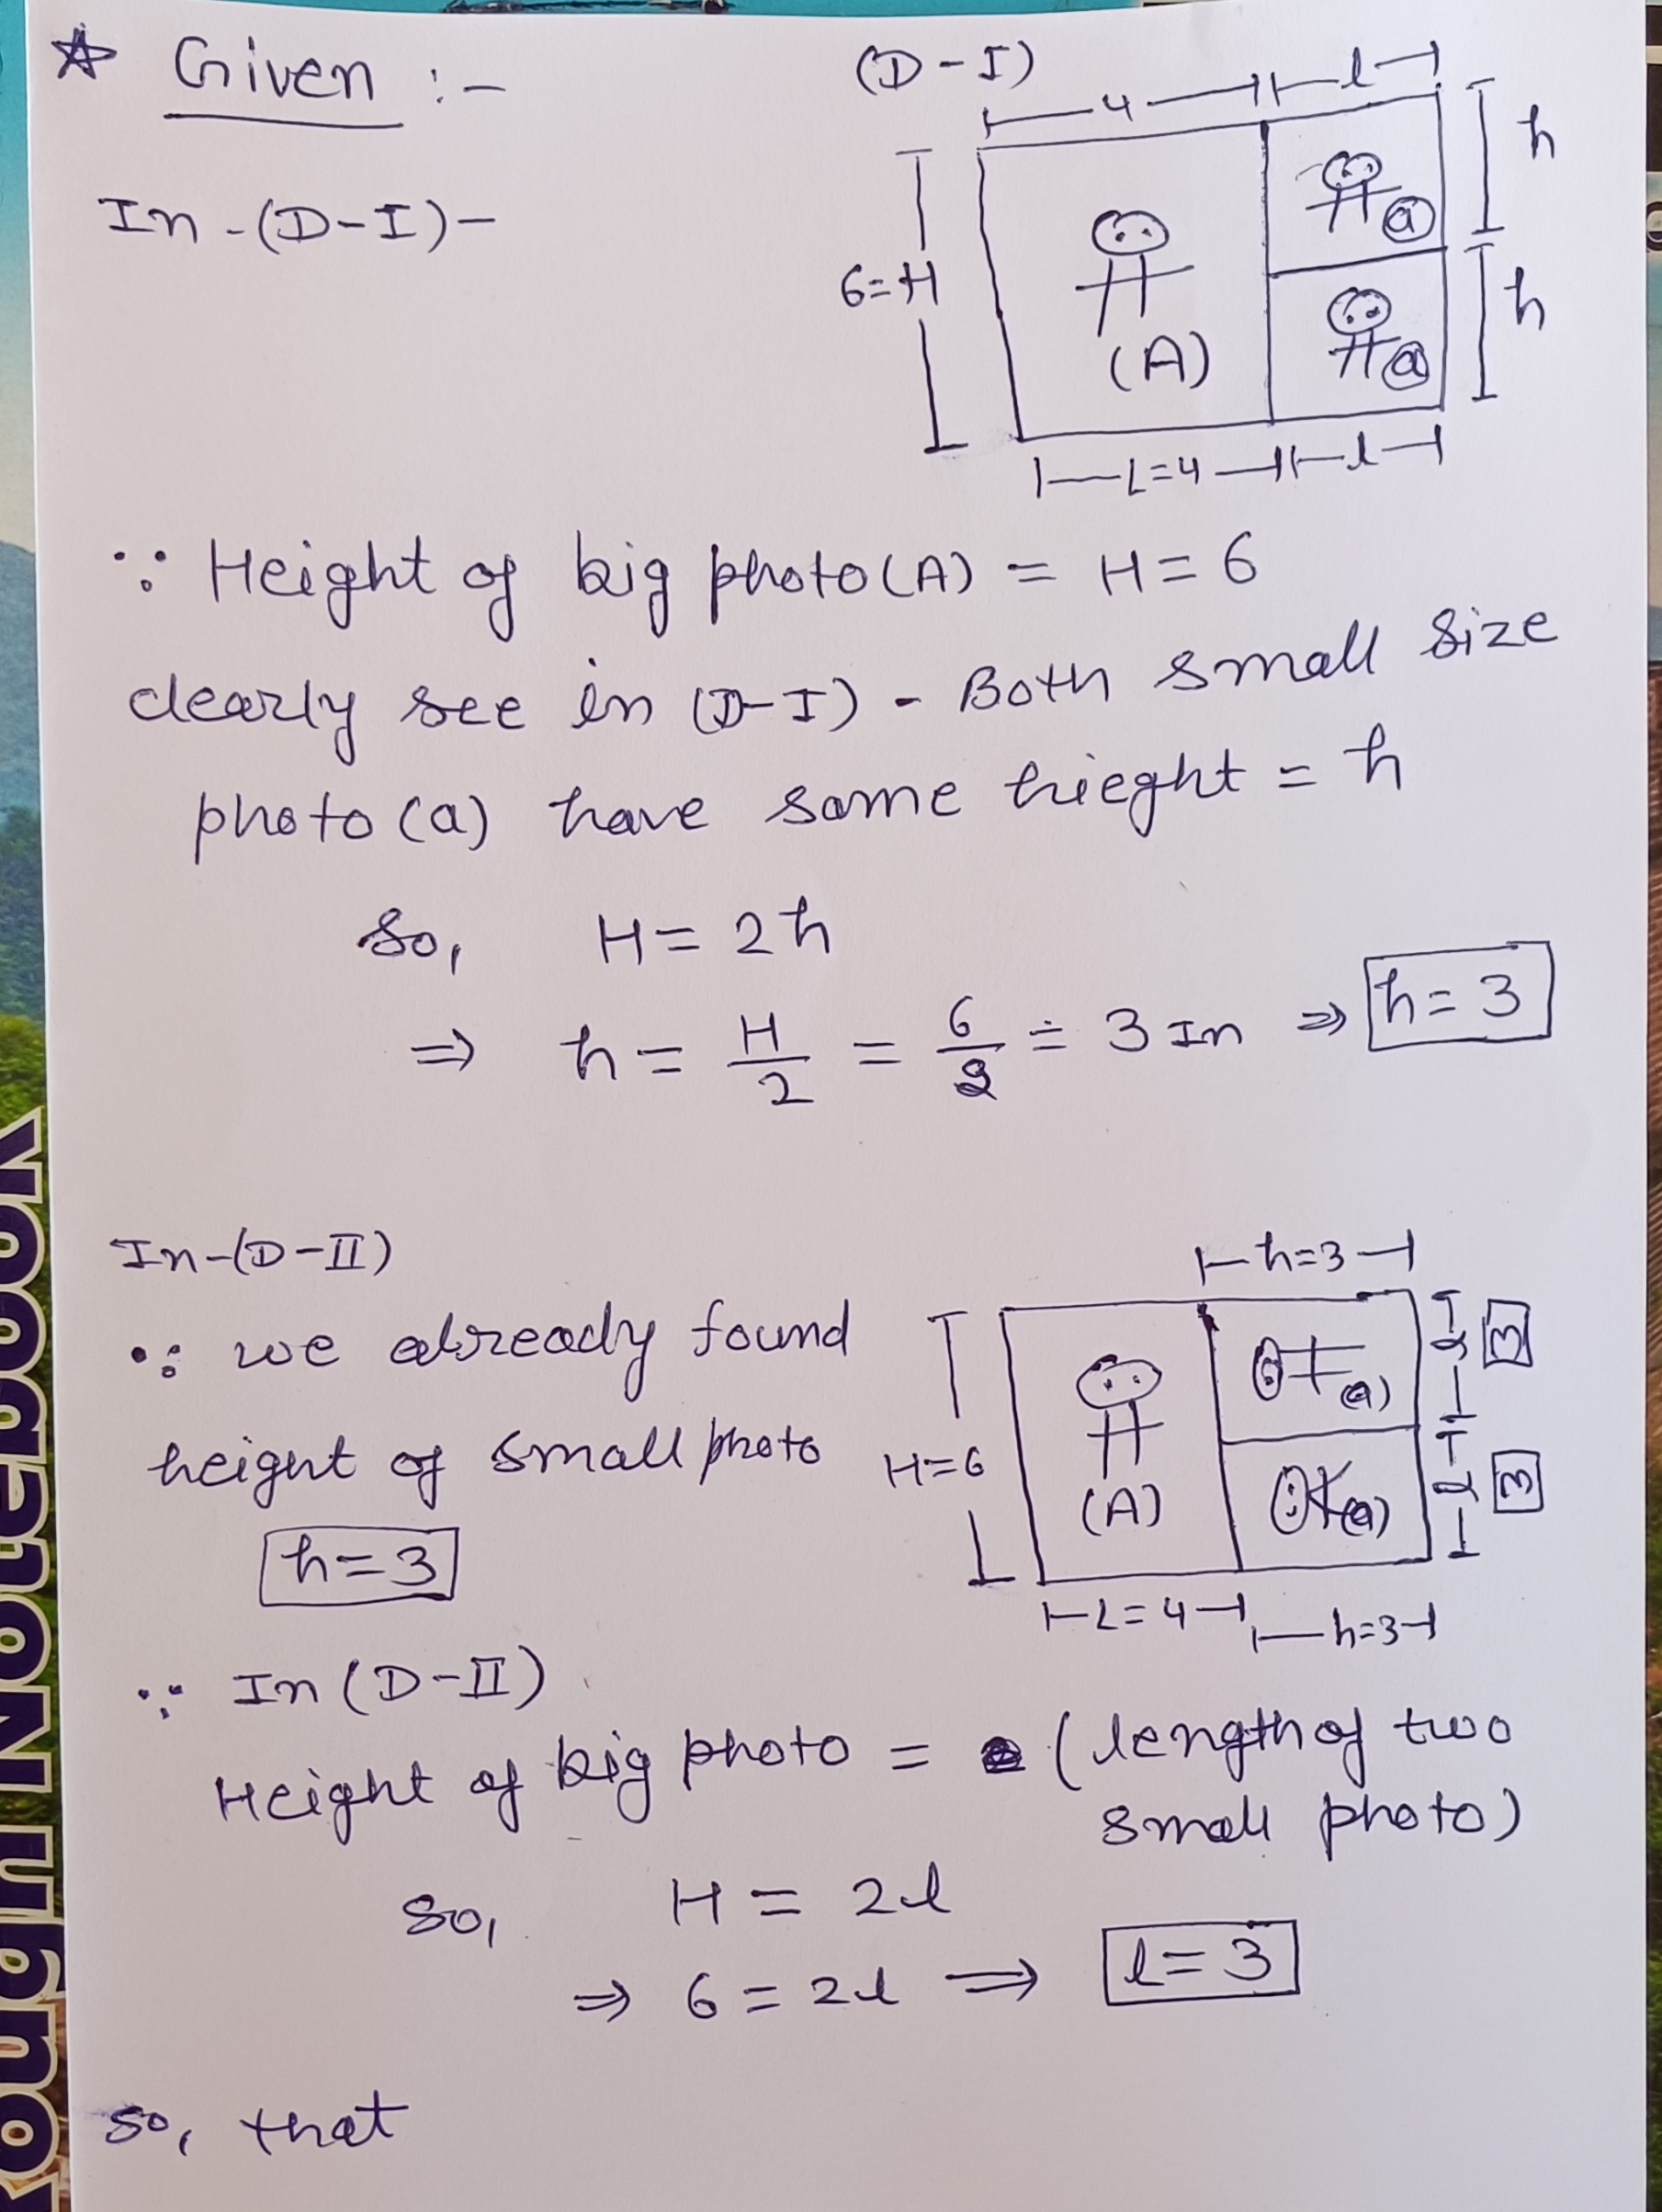 ☆ Given :-
(D-I)
4
l
In-(D-I)-
6=H
h
h
(A)
a
a
L=4
l
∵ Height of big photo(A) = H=6
clearly see in (D-I) - Both small size
photo(a) have same hieght = h
So, H = 2h
⇒ h = H/2 = 6/2 = 3 In ⇒ h=3
In-(D-II)
h=3
∵ we already found
height of small photo
h=3
H=6
(A)
(a)
(a)
l 3
l 3
L=4
h=3
∵ In (D-II)
Height of big photo = (length of two
small photo)
So, H = 2l
⇒ 6 = 2l ⇒ l=3
So, that
Rough Notebook